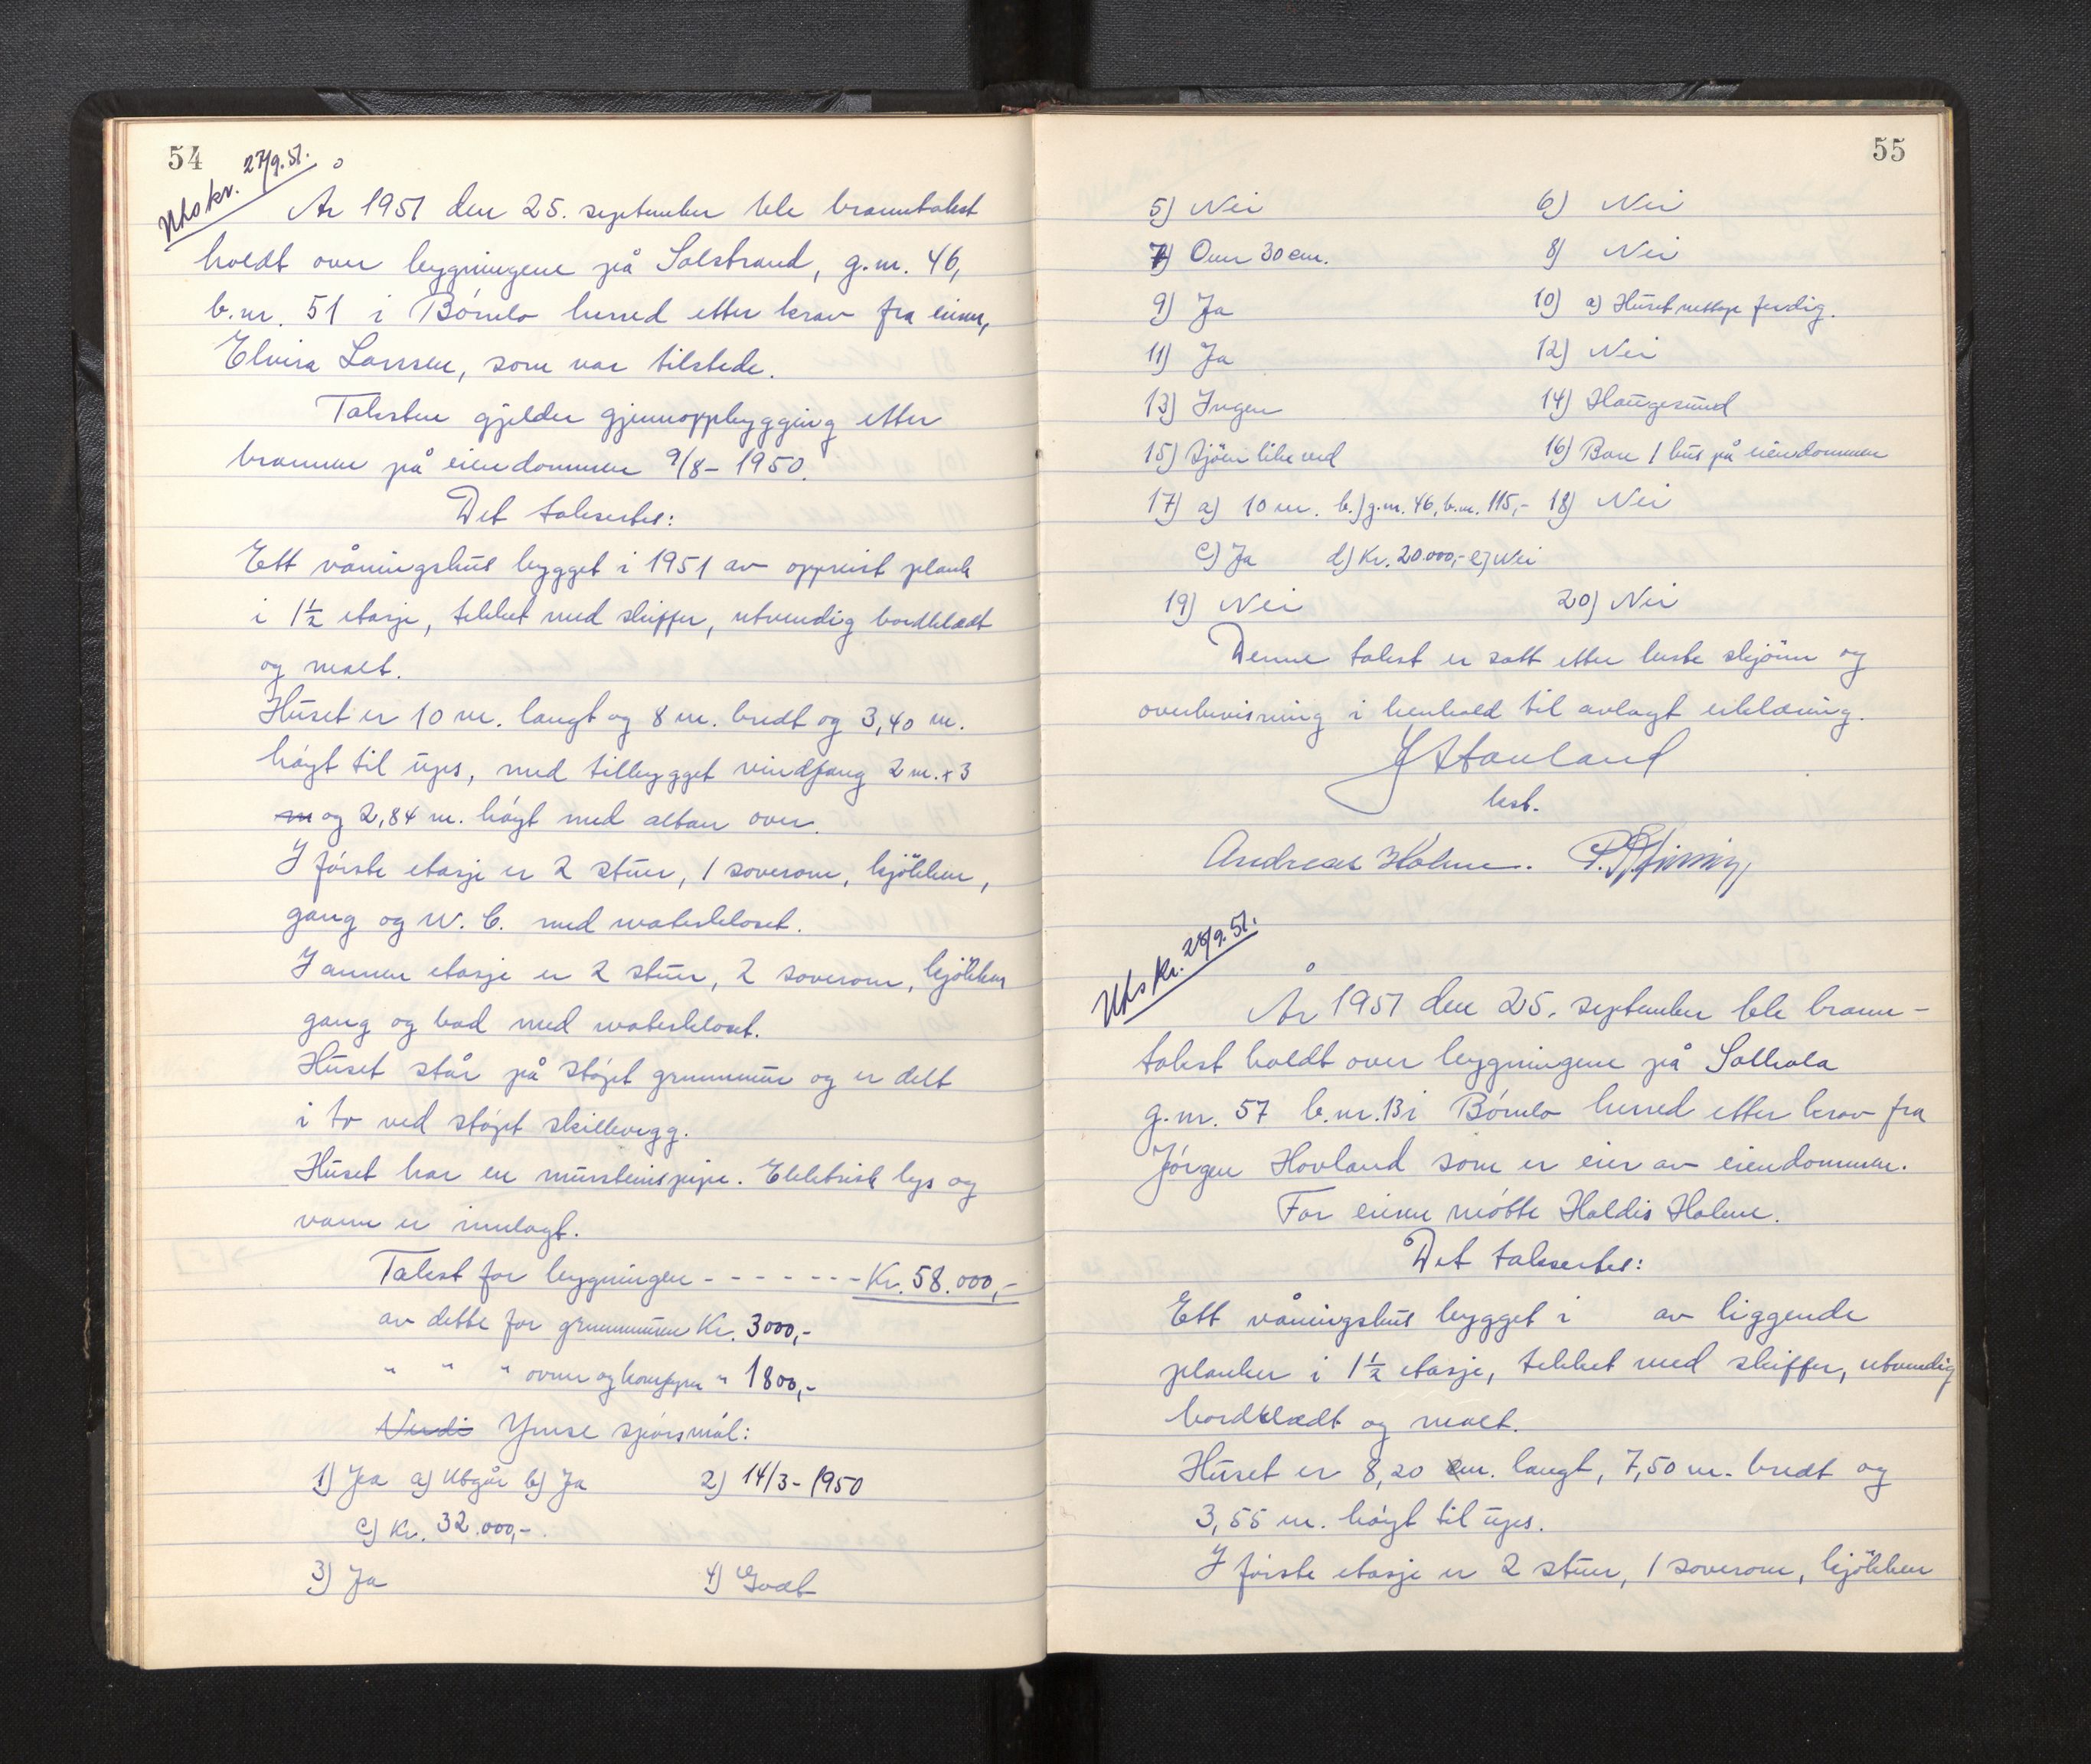 54
Utskr. 27/9.51.
År 1951 den 25. september ble branntakst
holdt over bygningene på Solstrand, g.nr. 46,
b.nr. 51 i Bömlo herred etter krav fra eieren,
Elvira Larssen, som var tilstede.
Taksten gjelder gjennoppbygging etter
brannen på eiendommen 9/8 - 1950.
Det taksertes:
Ett våningshus bygget i 1951 av oppreist plank
i 1½ etasje, tekket med skiffer, utvendig bordkledt
og malt.
Huset er 10 m. langt og 8 m. bredt og 3,40 m.
høyt til ups, med tilbygget vindfang 2 m. x 3
m og 2,84 m. høyt med altan over.
I første etasje er 2 stuer, 1 soverom, kjökken,
gang og W. C. med waterkloset.
I annen etasje er 2 stuer, 2 soverom, kjökken
gang og bad med waterkloset.
Huset står på støpt grunnmur og er delt
i to ved støpt skillevegg.
Huset har en mursteinspipe. Elektrisk lys og
vann er innlagt.
Takst for bygningen - - - - - - - Kr. 58.000,-
av dette for grunnmuren Kr. 3000,-
" " " ovner og komfyrer " 1800,-
Verdi Ymse spörsmål:
1) Ja a) Utgår b) Ja 2) 14/3 - 1950
c) Kr. 32.000,-
3) Ja 4) Godt
55
5) Nei 6) Nei
7) Over 30 cm. 8) Nei
9) Ja 10) a) Huset nettopp ferdig.
11) Ja 12) Nei
13) Ingen 14) Haugesund
15) Sjöen like ved 16) Bare 1 hus på eiendommen
17) a) 10 m. b.) g.nr. 46, b.nr. 115,- 18) Nei
c) Ja d) Kr. 20.000,- e) Nei
19) Nei 20) Nei
Denne takst er satt etter beste skjönn og
overbevisning i henhold til avlagt erklæring.
Stauland
lest.
Andreas Holme.
Utskr. 28/9.51.
År 1951 den 25. september ble brann-
takst holdt over bygningene på Solhola
g.nr. 57 b.nr. 13 i Bömlo herred etter krav fra
Jörgen Hovland som er eier av eiendommen.
For eieren møtte Haldis Holme.
Det taksertes:
Ett våningshus bygget i av liggende
planker i 1½ etasje, tekket med skiffer, utvendig
bordkledt og malt.
Huset er 8,20 m. langt, 7,50 m. bredt og
3,55 m. høyt til ups.
I første etasje er 2 stuer, 1 soverom, kjökken